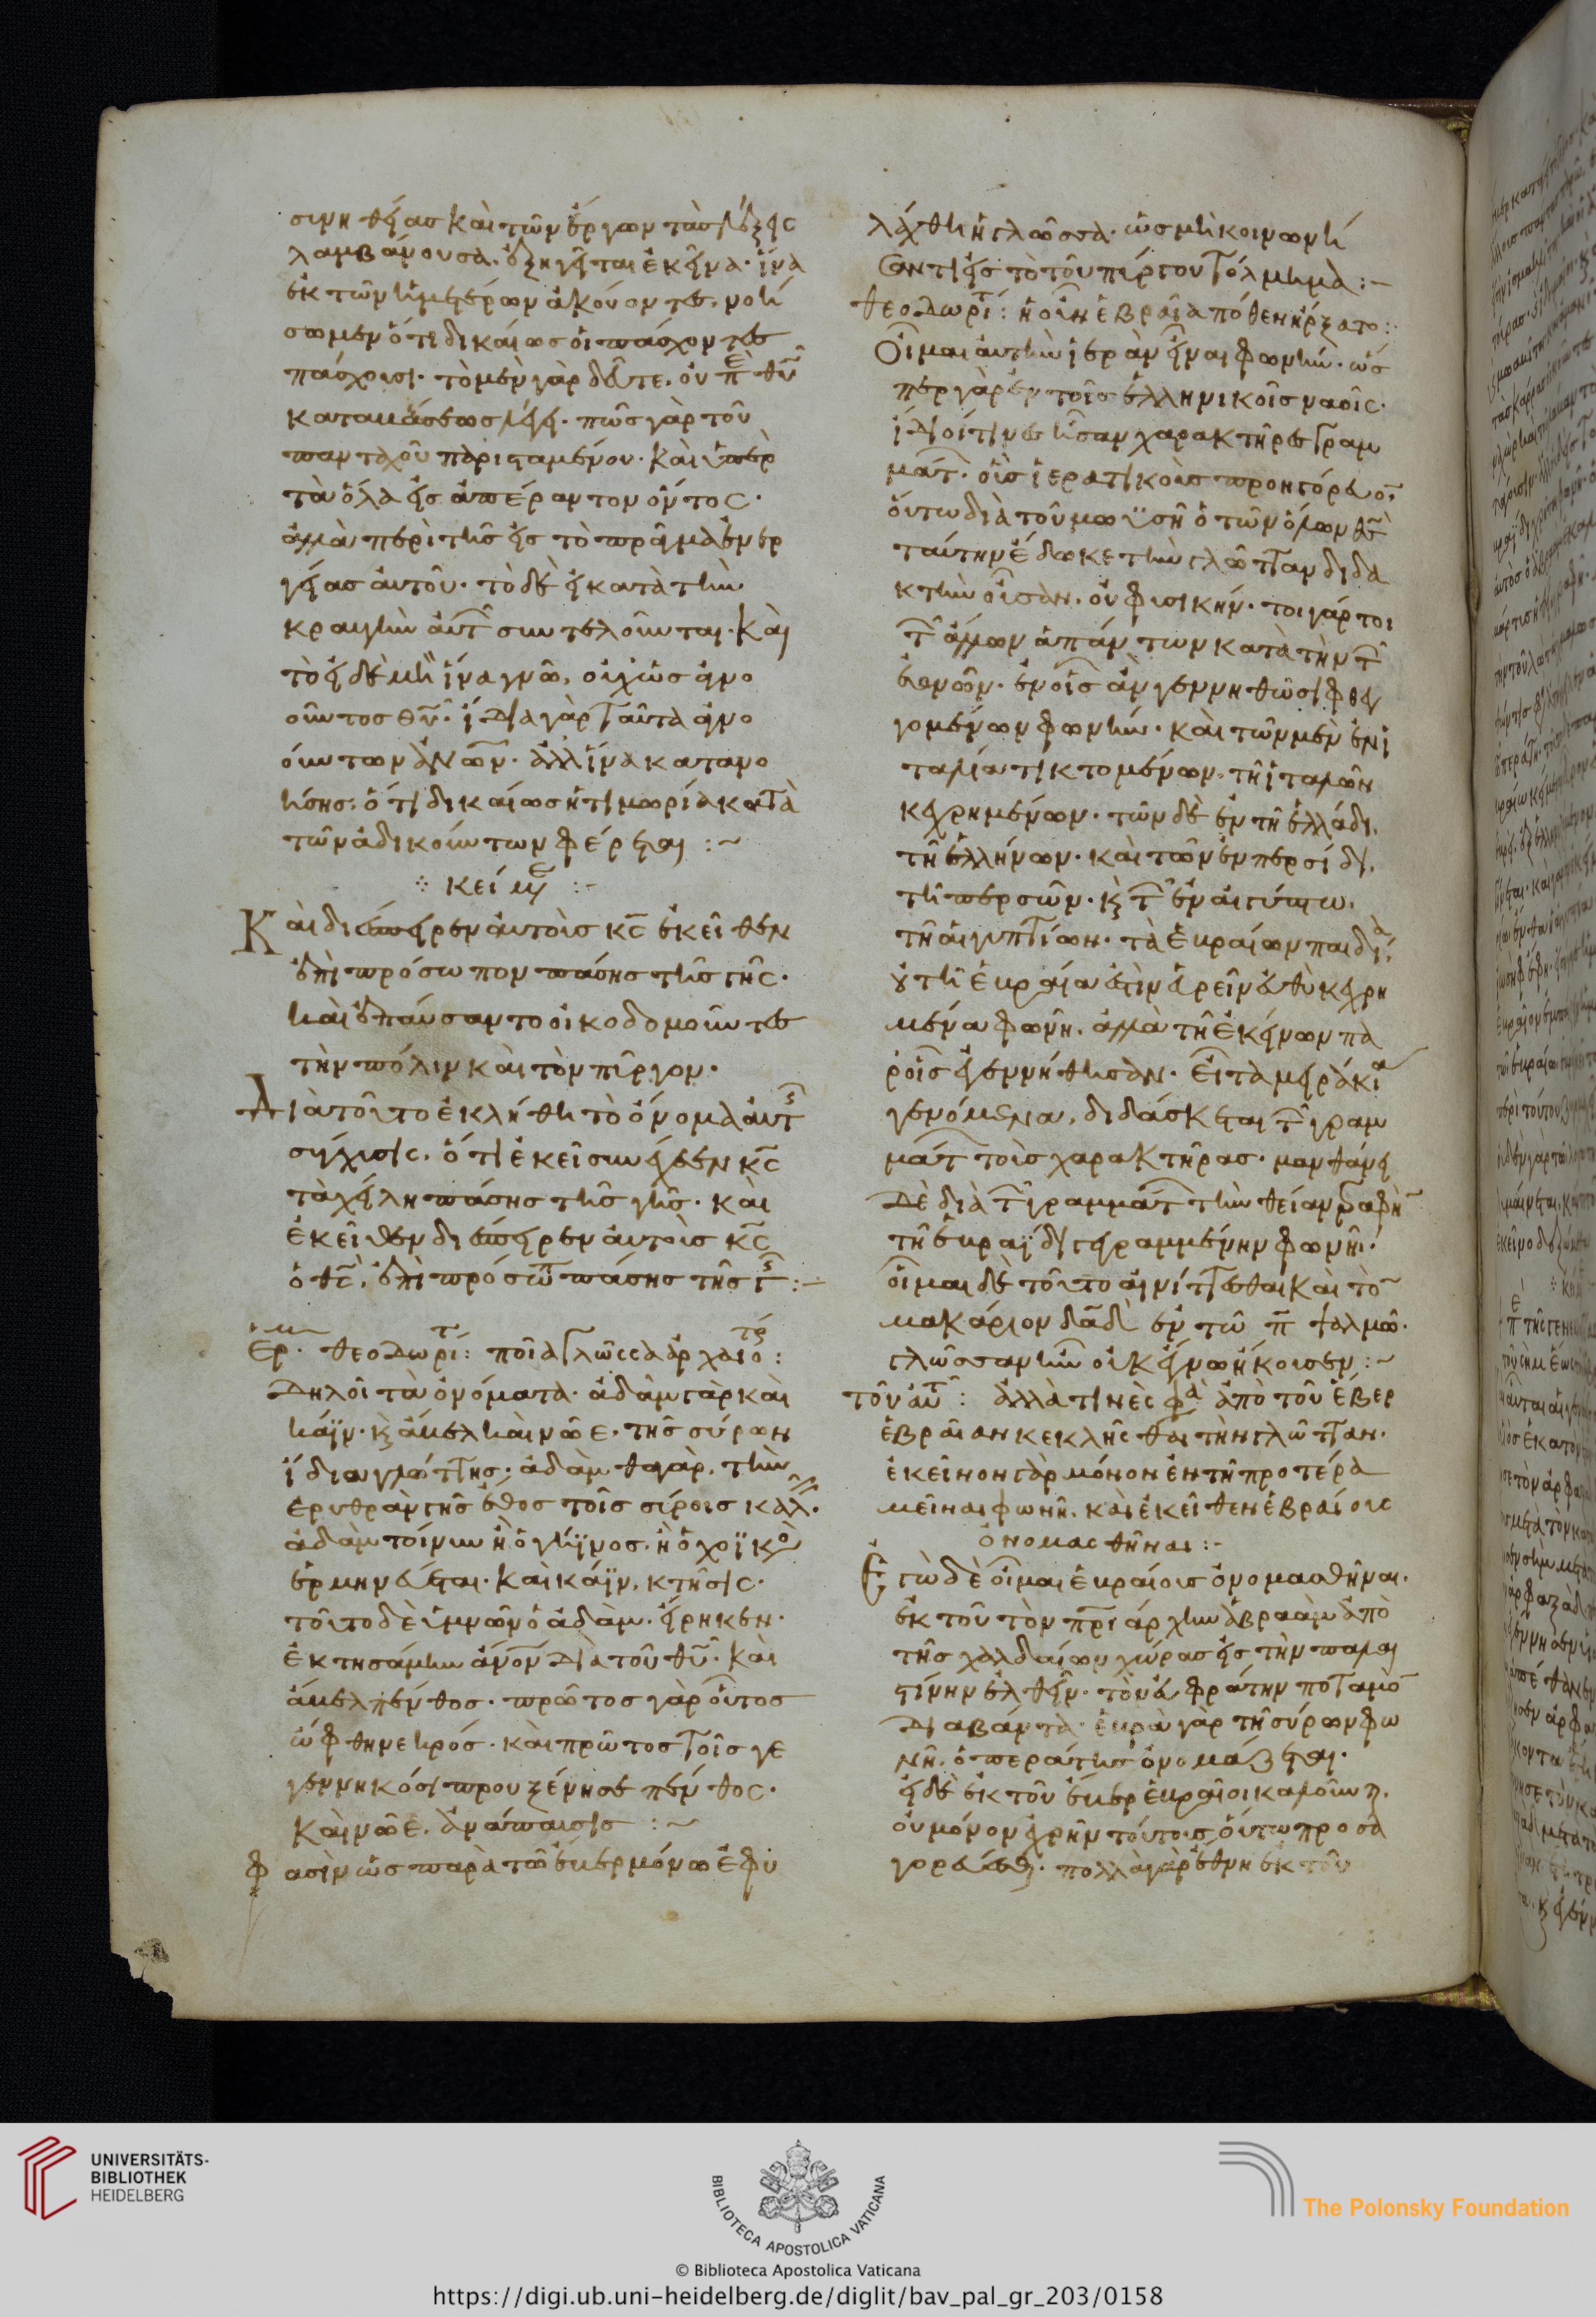 συνηθείας καὶ τῶν ἔργων τὰς
λαμβάνουσα, διηγεῖται ἐκεῖνα. ἵνα
ἐκ τῶν ἡμετέρων ἀκούοντες, νοή
σωμεν ὅτι δικαίως οἱ πάσχοντες
πάσχουσι. τὸ μὲν γὰρ δεῦτε. οὐ π̅ε̅ θ̅υ̅
καταβάσεως λέγει. πῶς γὰρ τοῦ
πανταχοῦ παρισταμένου. καὶ ὑπὲρ
τὰ ὅλα εἰς ἀπέραντον ὄντος.
ἀλλὰ περὶ τῆς εἰς τὸ πρᾶγμα ἐνερ
γείας αὐτοῦ. τὸ δὲ εἰ κατὰ τὴν
κραυγὴν αὐτ συντελοῦνται. καὶ
τὸ εἰ δὲ μὴ ἵνα γνῶ, οὐχ ὡς ἀγνο
οῦντος θ̅υ̅. ἴδια γὰρ ταῦτα ἀγνο
ούντων ἀ̅ν̅ῶν. ἀλλ ἵνα κατανο
ήσης. ὅτι δικαίως ἡ τιμωρία κατὰ
τῶν ἀδικούντων φέρεται :~
κείμε :-
Καὶ διέσπειρεν αὐτοὺς κ̅ς̅ ἐκεῖθεν
ἐπὶ πρόσωπον πάσης τῆς γῆς.
καὶ ἐπαύσαντο οἰκοδομοῦντες
τὴν πόλιν καὶ τὸν πύργον.
Διὰ τοῦτο ἐκλήθη τὸ ὄνομα αὐτ
σύγχυσις. ὅτι ἐκεῖ συνέχεεν κ̅ς̅
τὰ χείλη πάσης τῆς γῆς. καὶ
ἐκεῖθεν διέσπειρεν αὐτοὺς κ̅ς̅
ὁ θ̅ς̅, ἐπὶ πρόσωπ πάσης τῆς γ :-
Ερ. θεοδωρίτ: ποῖα γλῶσσα ἀρχαιοτρ:
Δηλοῖ τὰ ὀνόματα. ἀδὰμ γὰρ καὶ
κάϊν. καὶ ἄβελ καὶ νῶε. τῆς σύρων
ἴδια γλώττης. ἀδαμθὰ γὰρ, τὴν
ἐρυθρὰν γῆν ἔθος τοῖς σύροις καλ.
ἀδὰμ τοίνυν ἢ ὁ γήϊνος. ἢ ὁ χοϊκὸ
ἑρμηνεύεται. καὶ κάϊν, κτῆσις.
τοῦτο δὲ ὑμνῶν ὁ ἀδὰμ. εἴρηκεν.
ἐκτησάμην ἄ̅ν̅ο̅ν̅ διὰ τοῦ θ̅υ̅. καὶ
ἄβελ πένθος. πρῶτος γὰρ οὗτος
ὤφθη νεκρός. καὶ πρῶτος τοῖς γε
γεννηκόσι προυξένησε πένθος.
καὶ νῶε. ἀνάπαυσις :~
Φασὶν ὡς παρὰ τῶ ἔβερ μόνω ἐφυ
λάχθη ἡ γλῶσσα. ὡς μὴ κοινωνή
σαντι εἰς τὸ τοῦ πύργου τόλμημα :-
θεοδωρίτ: ἡ οὖν ἑβραῖα πόθεν ἤρξατο :
Οἶμαι αὐτὴν ἱερὰν εἶναι φωνήν. ὥσ
περ γὰρ ἐν τοῖς ἑλληνικοῖς ναοῖς.
ἴδιοί τινες ἦσαν χαρακτῆρες γραμ
μάτ. οὓς ἱερατικοὺς προηγόρευο,
οὕτω διὰ τοῦ μωϋσῆ ὁ τῶν ὅλων θ̅ς̅
ταύτην ἔδωκε τὴν γλῶτταν διδα
κτὴν οὖσαν. οὐ φυσικήν. τοιγάρτοι
τ ἄλλων ἁπάντων κατὰ τὴν τ
ἐθνῶν. ἐν οἷς ἂν γεννηθῶσι φθεγ
γομένων φωνήν. καὶ τῶν μὲν ἐν ἰ
ταλία τικτομένων, τῆ ἰταλῶν
κεχρημένων. τῶν δὲ ἐν τῆ ἑλλάδι,
τῆ ἑλλήνων. καὶ τῶν ἐν περσίδι,
τῆ περσῶν. καὶ τ ἐν αἰγύπτω,
τῆ αἰγυπτίων. τὰ ἑβραίων παιδία,
οὐ τῆ ἑβραία ἐστὶν εὑρεῖν εὐθὺ κεχρη
μένα φωνῆ. ἀλλὰ τῆ ἐκείνων πα
ρ οἷς ἐγεννήθησαν. εἶτα μειράκια
γενόμενα, διδάσκεται τ γραμ
μάτ τοὺς χαρακτῆρας. μανθάνει
δὲ διὰ τ γραμμάτ τὴν θείαν γραφὴ
τῆ ἑβραΐδι γεγραμμένην φωνῆ.
οἶμαι δὲ τοῦτο αἰνίττεσθαι καὶ τὸ
μακάριον δ̅α̅δ̅ ἐν τῶ π̅ ψαλμῶ.
γλῶσσαν ἣν οὐκ ἔγνω ἤκουσεν :~
τοῦ αὐτ: ἀλλὰ τινές φα ἀπὸ τοῦ ἔβερ
ἑβραίαν κεκλῆσθαι τὴν γλῶτταν.
ἐκεῖνον γὰρ μόνον ἐν τῆ προτέρα
μεῖναι φωνῆ. καὶ ἐκεῖθεν ἑβραίους
ὀνομασθῆναι :-
Ἐγὼ δὲ οἶμαι ἑβραίους ὀνομασθῆναι.
ἐκ τοῦ τὸν π̅ρ̅ιάρχην ἀβραὰμ ἀπὸ
τῆς χαλδαίων χώρας εἰς τὴν παλαι
στίνην ἐλθεῖν. τὸν εὐφράτην ποταμὸ
διαβάντα. ἑβρὰ γὰρ τῆ σύρων φω
νῆ. ὁ περάτης ὀνομάζεται.
εἰ δὲ ἐκ τοῦ ἔβερ ἑβραῖοι καλοῦντ.
οὐ μόνον ἐχρῆν τούτους οὕτω προσα
γορεύεσθ. πολλὰ γὰρ ἔθνη ἐκ τοῦ
UNIVERSITÄTS-
BIBLIOTHEK
HEIDELBERG
BIBLIOTECA APOSTOLICA VATICANA
The Polonsky Foundation
© Biblioteca Apostolica Vaticana
https://digi.ub.uni-heidelberg.de/diglit/bav_pal_gr_203/0158